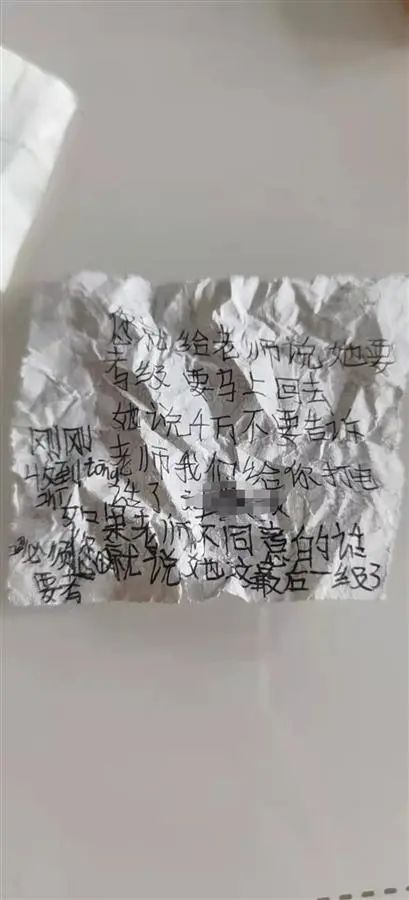 你就给老师说她要
考级 要马上回去
她说千万不要告诉
老师我们给你打电
话了
如果老师不同意的话
你就说她这最后一级了
刚刚
收到tōng
知
必须
要考